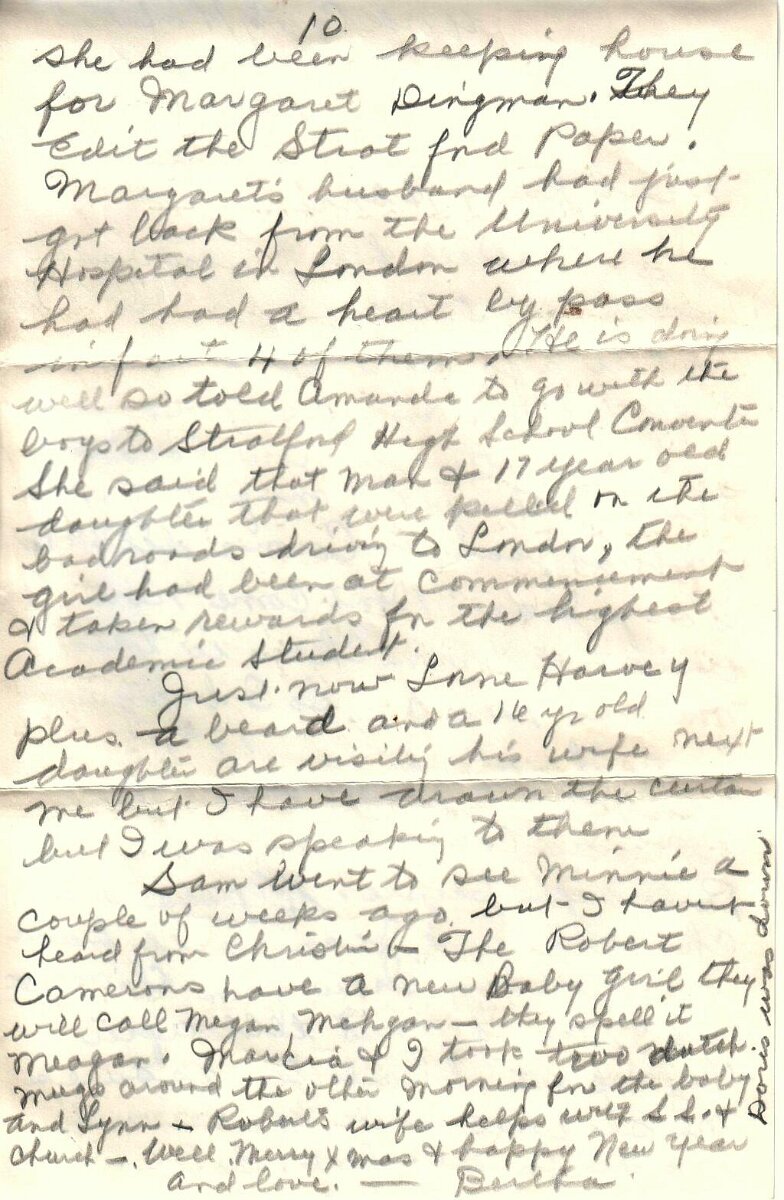 10
she had been keeping house
for Margaret Dingman. They
Edit the Stratford Paper.
Margaret's husband had just
got back from the University
Hospital in London where he
had had a heart by pass
in fact 4 of them. He is doing
well so told Amanda to go with the
boys to Stratford High School
She said that man & 17 year old
daughter that were killed on the
bad roads driving to London, the
girl had been at commencement
& taken rewards for the highest
Academic Student.
Just now Lorne Harvey
plus a beard and a 16 yr old
daughter are visiting his wife next
me but I have drawn the curtain
but I was speaking to them
Sam went to see Minnie a
couple of weeks ago but I havent
heard from Christine - The Robert
Camerons have a new Baby girl they
will call Megan Mehgan - they spell it
Meagan. Marcia & I took two dutch
mugs around the other Morning for the baby
and Lynn - Robert's wife helps with S.S. &
church -. Well Merry Xmas & happy New Year
and love. — Bertha.
Doris was down